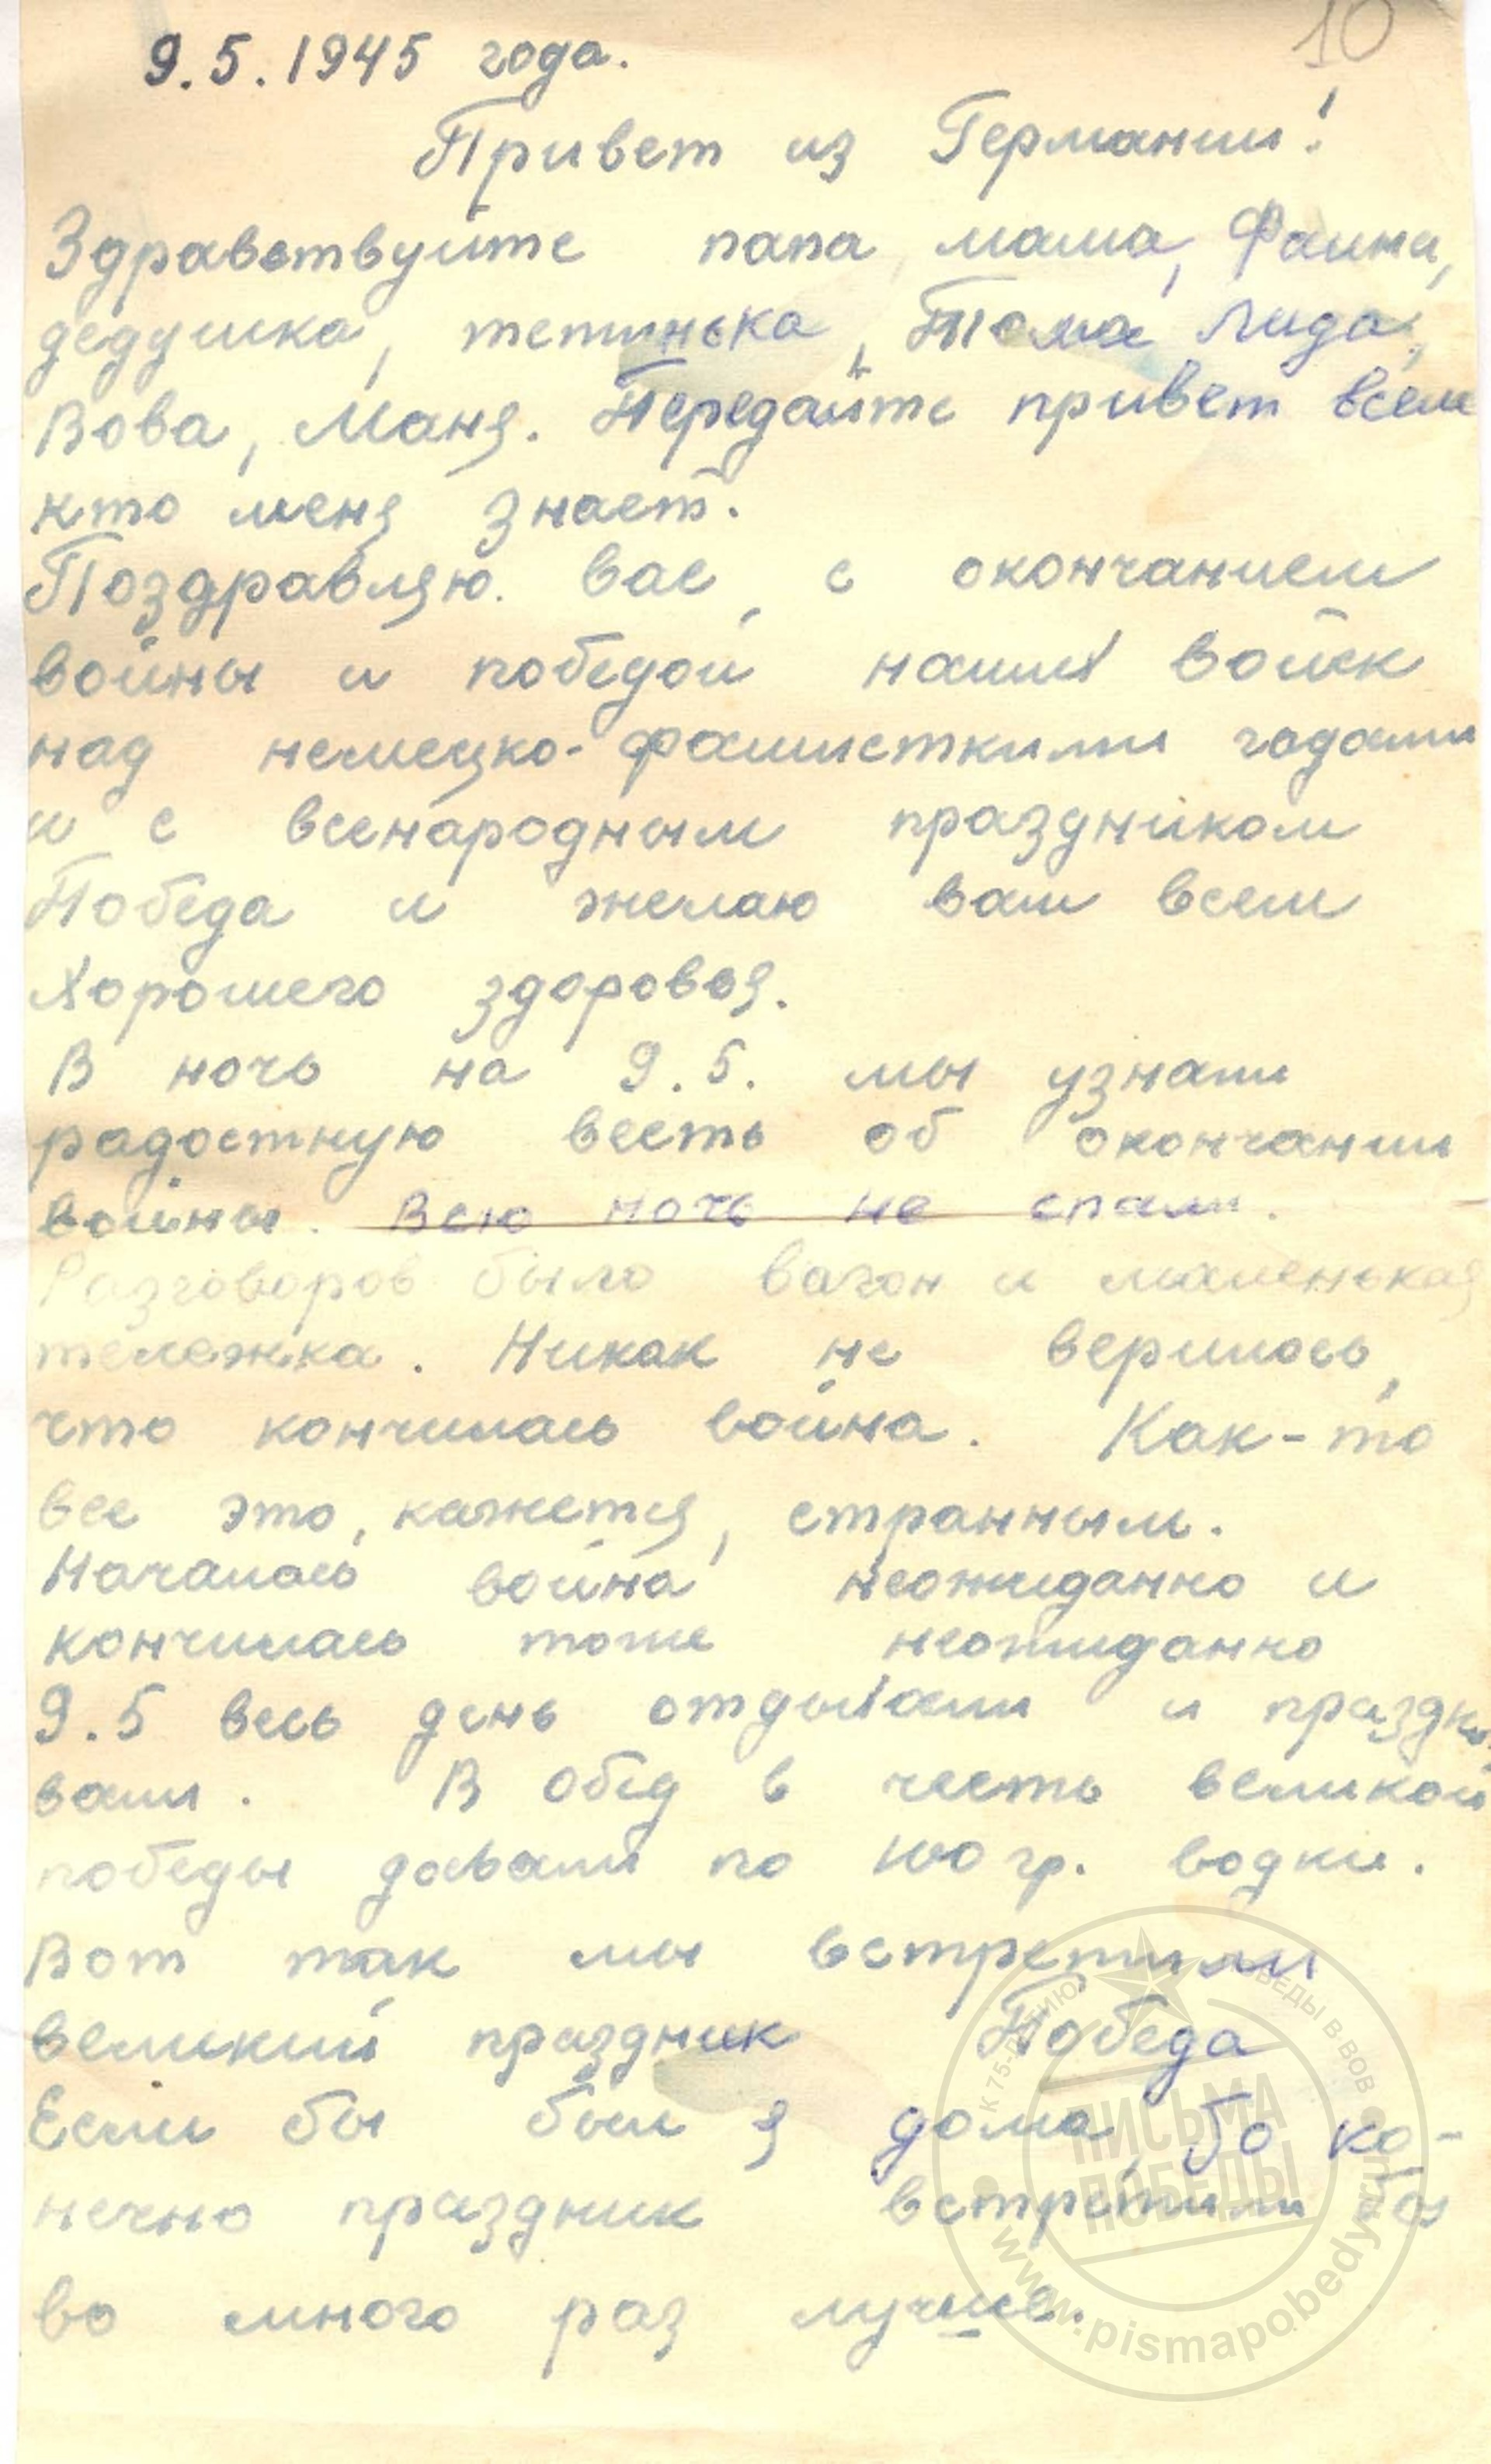 10
9.5.1945 года.
Привет из Германии!
Здравствуйте папа мама, Фаина,
дедушка, тетинька, Тома Лида,
Вова, Маня. Передайте привет всем
кто меня знает.
Поздравляю вас, с окончанием
войны и победой наших войск
над немецко-фашисткими гадами
и с всенародным праздником
Победа и желаю вам всем
хорошего здоровья.
В ночь на 9.5. мы узнали
радостную весть об окончании
войны. Всю ночь не спали.
Разговоров было вагон и маленькая
тележка. Никак не верилось,
что кончилась война. Как-то
все это, кажется, странным.
Началась война неожиданно и
кончилась тоже неожиданно
9.5 весь день отдыхали и праздно
вали. В обед в честь великой
победы давали по 100 гр. водки.
Вот так мы встретили
великий праздник Победа
Если бы был я дома, то ко-
нечно праздник встретили бы
во много раз лучше.
К 75-ЛЕТИЮ ПОБЕДЫ В ВОВ
ПИСЬМА
ПОБЕДЫ
www.pismapobedy.ru